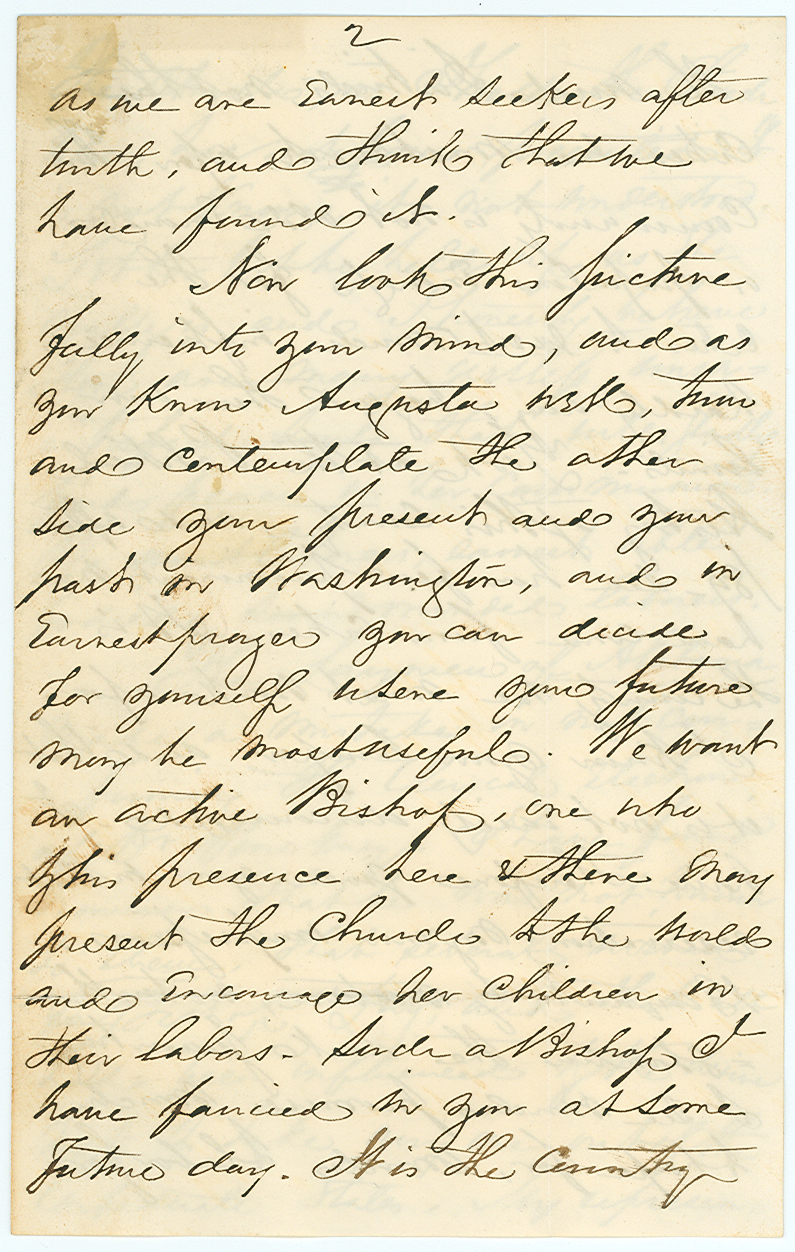 2
as we are Earnest seekers after
truth, and think that we
have found it.
Now look this picture
fully into your mind, and as
you know Augusta well, turn
and contemplate the other
side your present and your
past in Washington, and in
Earnest prayer you can decide
for yourself where your future
may be most useful. We want
an active Bishop, one who
by his presence here & there may
present the Church to the world
and Encourage her children in
their labors - Such a Bishop I
have fancied in you at some
future day. It is the Country